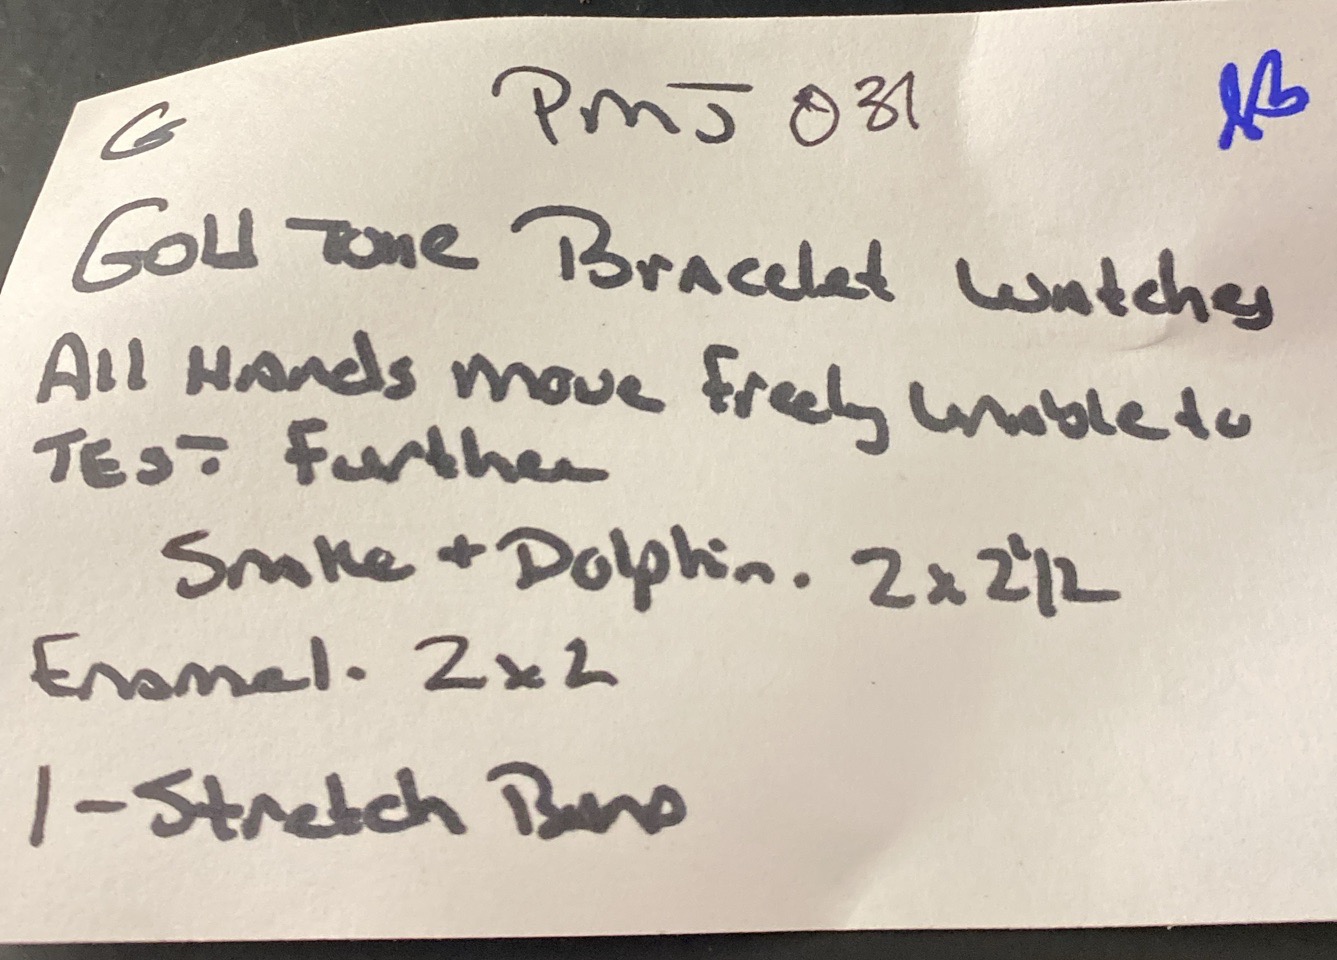 G PMJ 031
Gold Tone Bracelet Watches
All Hands move freely Unable to
TEST Further
Snake + Dolphin. 2x2 1/2
Enamel. 2x2
1 - Stretch Band